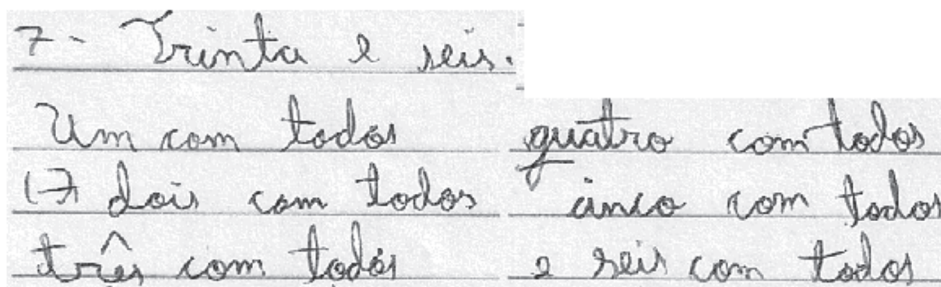 7 - Trinta e seis.
Um com todos
(7) dois com todos
três com todos
quatro com todos
cinco com todos
e seis com todos